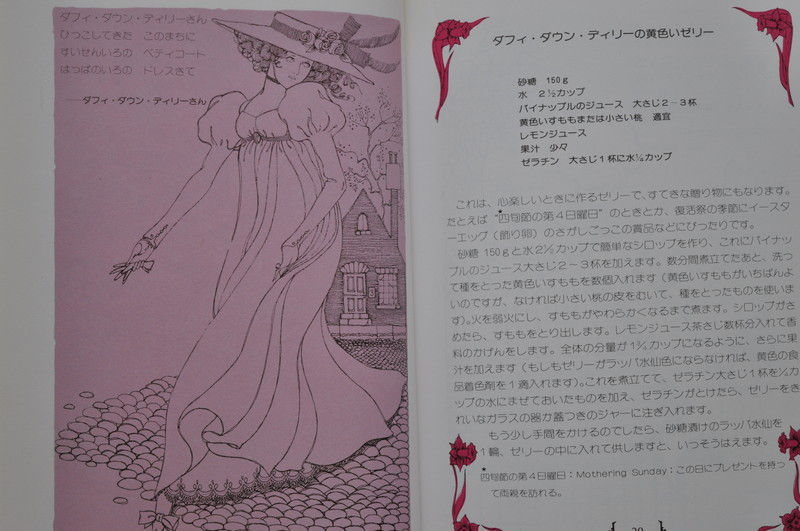 ダフィ・ダウン・ディリーさん
ひっこしてきた このまちに
すいせんいろの ペティコート
はっぱのいろの ドレスきて
──ダフィ・ダウン・ディリーさん
ダフィ・ダウン・ディリーの黄色いゼリー
砂糖 150g
水 2½カップ
パイナップルのジュース 大さじ2−3杯
黄色いすももまたは小さい桃 適宜
レモンジュース
果汁 少々
ゼラチン 大さじ1杯に水¼カップ
これは、心楽しいときに作るゼリーで、すてきな贈り物にもなります。
たとえば“四旬節の第4日曜日”のときとか、復活祭の季節にイースタ
ーエッグ(飾り卵)のさがしごっこの賞品などにぴったりです。
砂糖150gと水2½カップで簡単なシロップを作り、これにパイナッ
プルのジュース大さじ2〜3杯を加えます。数分間煮立てたあと、洗っ
て種をとった黄色いすももを数個入れます(黄色いすももがいちばんよ
いのですが、なければ小さい桃の皮をむいて、種をとったものを使いま
す)。火を弱火にし、すももがやわらかくなるまで煮ます。シロップがさ
めたら、すももをとり出します。レモンジュース茶さじ数杯分入れて香
料のかげんをします。全体の分量が1¾カップになるように、さらに果
汁を加えます(もしもゼリーがラッパ水仙色にならなければ、黄色の食
品着色剤を1滴入れます)。これを煮立てて、ゼラチン大さじ1杯を¼カ
ップの水にまぜておいたものを加え、ゼラチンがとけたら、ゼリーをき
れいなガラスの器か蓋つきのジャーに注ぎ入れます。
もう少し手間をかけるのでしたら、砂糖漬けのラッパ水仙を
1輪、ゼリーの中に入れて供しますと、いっそうはえます。
*
四旬節の第4日曜日:Mothering Sunday:この日にプレゼントを持っ
て両親を訪れる。